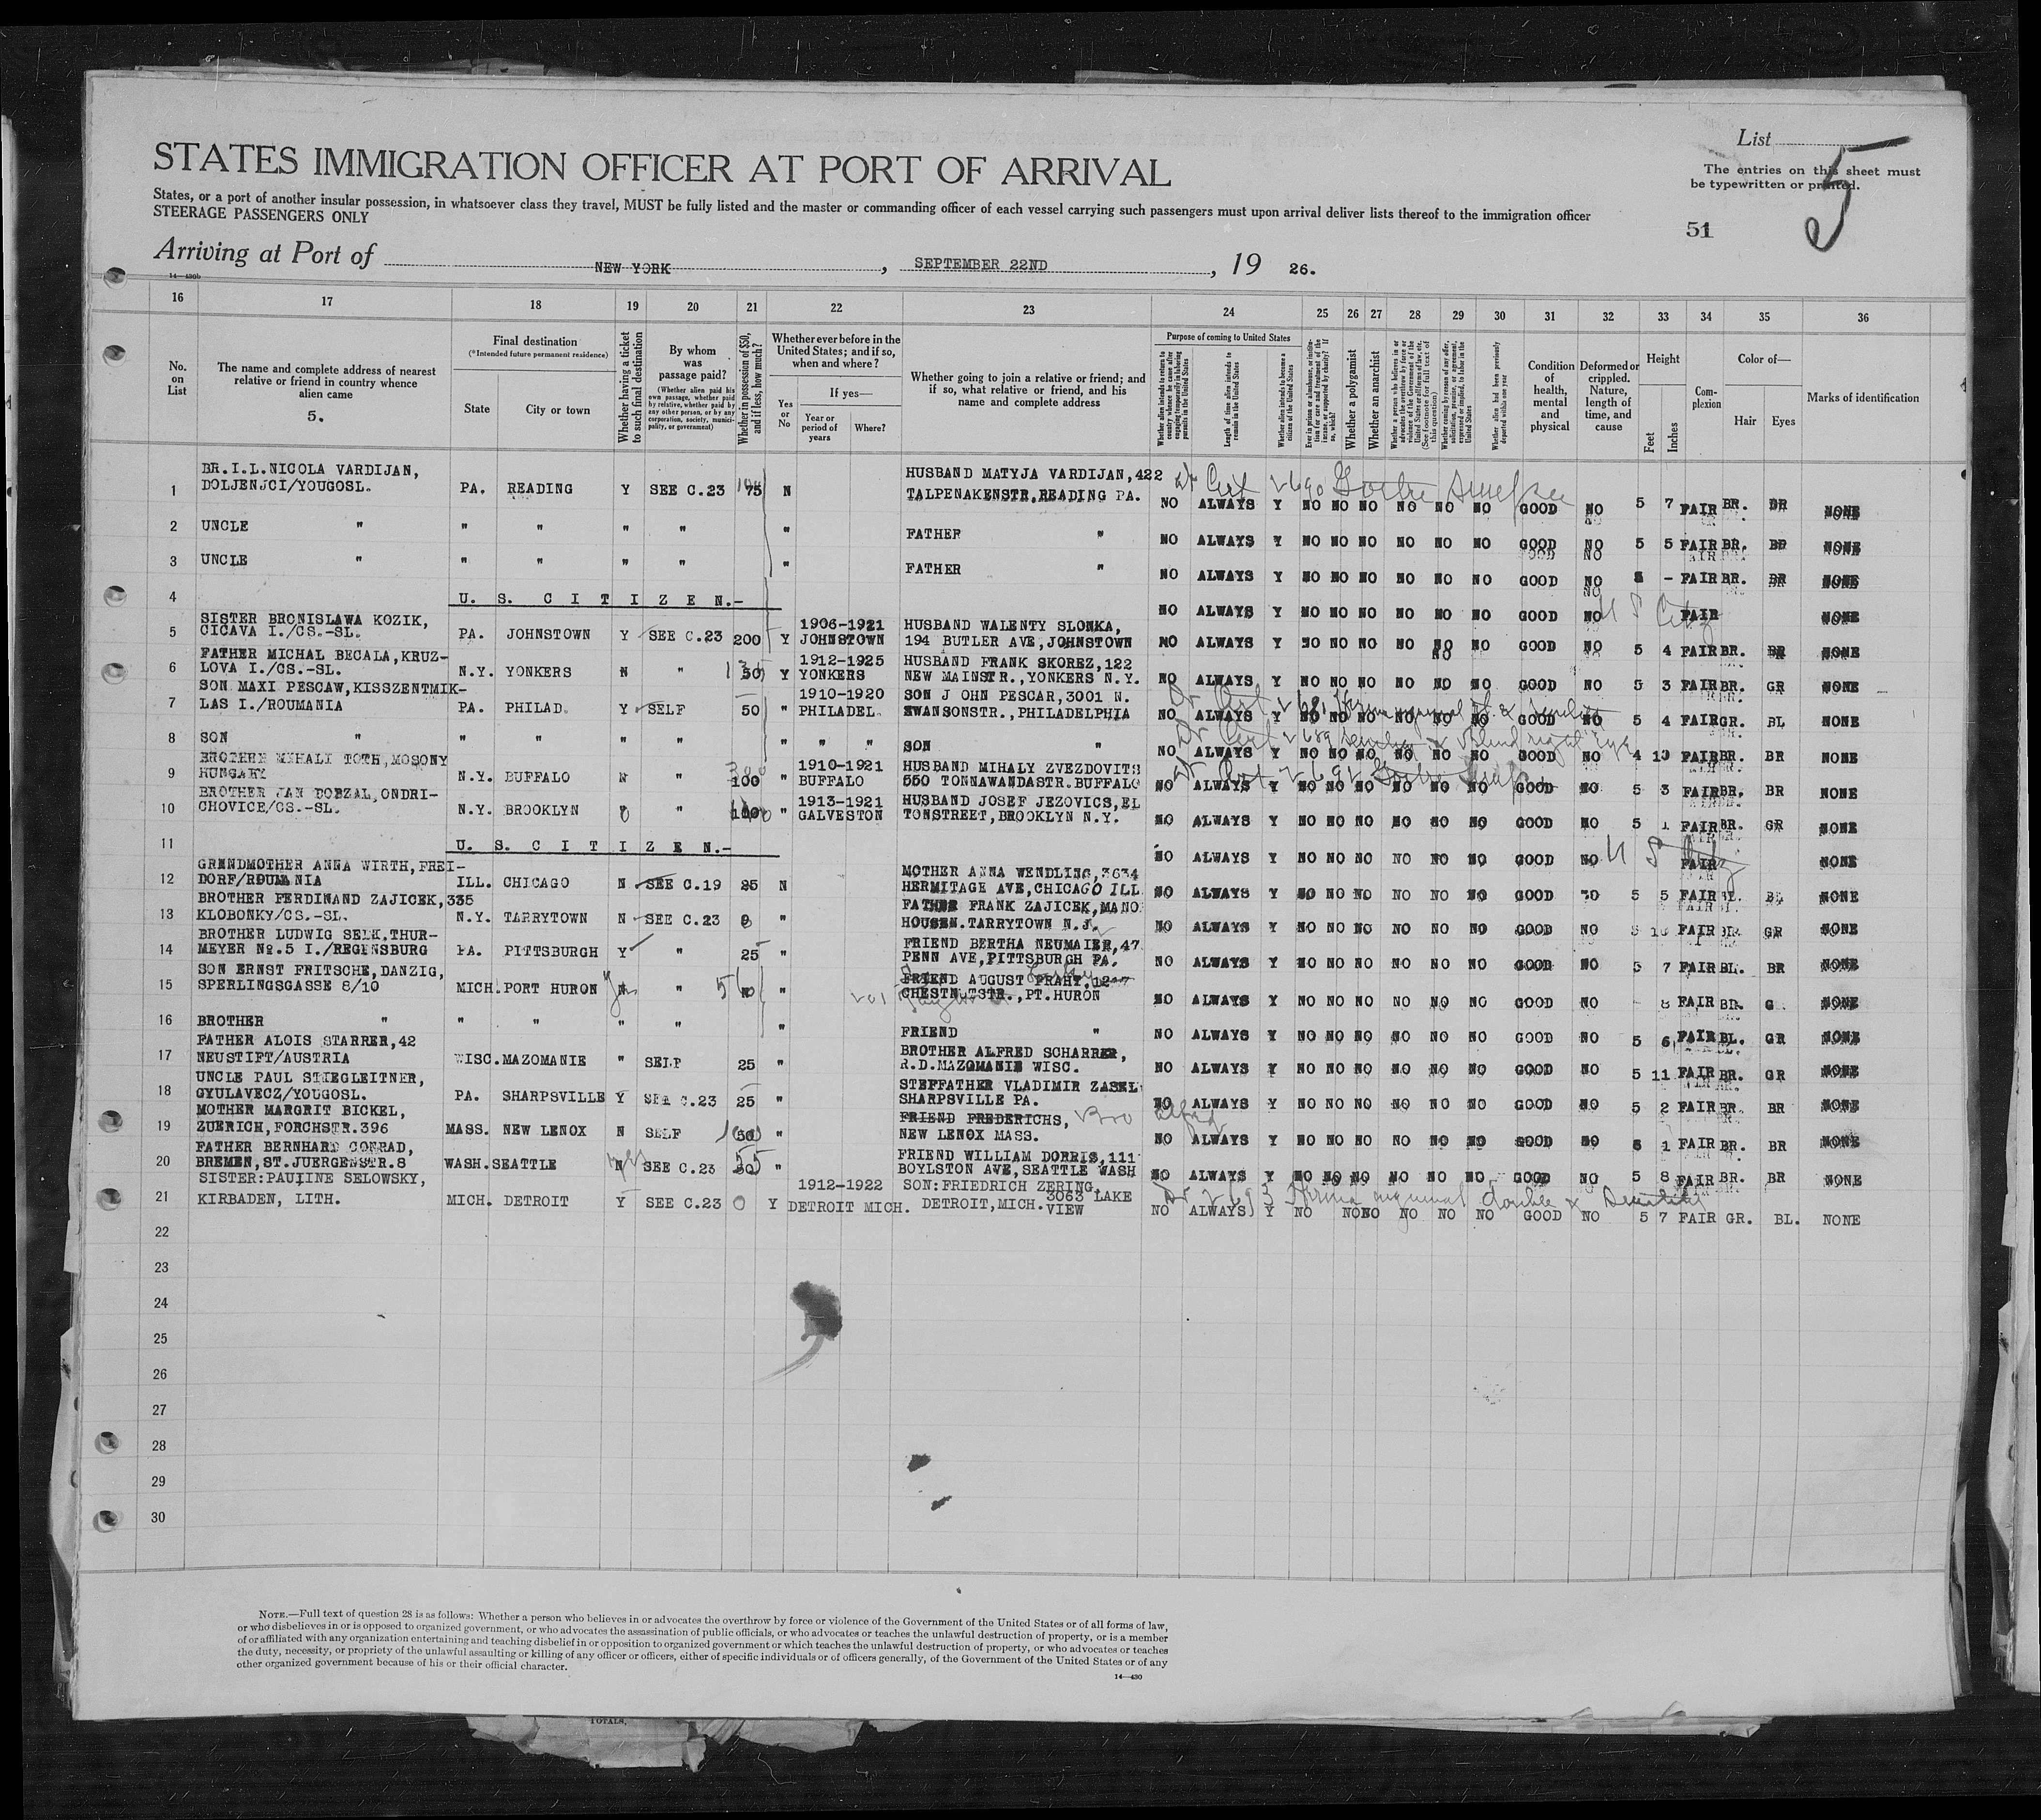 List
STATES IMMIGRATION OFFICER AT PORT OF ARRIVAL
The entries on this sheet must
be typewritten or printed.
5
States, or a port of another insular possession, in whatsoever class they travel, MUST be fully listed and the master or commanding officer of each vessel carrying such passengers must upon arrival deliver lists thereof to the immigration officer
STEERAGE PASSENGERS ONLY
51
Arriving at Port of NEW YORK, SEPTEMBER 22ND, 19 26.
14—430b
16 17 18 19 20 21 22 23 24 25 26 27 28 29 30 31 32 33 34 35 36
No. on List
The name and complete address of nearest relative or friend in country whence alien came
5.
Final destination
(*Intended future permanent residence)
State
City or town
Whether having a ticket to such final destination
By whom was passage paid?
(Whether alien paid his own passage, whether paid by relative, whether paid by any other person, or by any corporation, society, municipality, or government)
Whether in possession of $50, and if less, how much?
Whether ever before in the United States; and if so, when and where?
Yes or No
If yes—
Year or period of years
Where?
Whether going to join a relative or friend; and if so, what relative or friend, and his name and complete address
Purpose of coming to United States
Whether alien intends to return to country whence he came after engaging temporarily in laboring pursuits in the United States
Length of time alien intends to remain in the United States
Whether alien intends to become a citizen of the United States
Ever in prison or almshouse, or institution for care and treatment of the insane, or supported by charity? If so, which?
Whether a polygamist
Whether an anarchist
Whether a person who believes in or advocates the overthrow by force or violence of the Government of the United States or all forms of law, etc. (See footnote for full text of this question)
Whether coming by reason of any offer, solicitation, promise, or agreement, expressed or implied, to labor in the United States
Whether alien had been previously deported within one year
Condition of health, mental and physical
Deformed or crippled. Nature, length of time, and cause
Height
Feet
Inches
Complexion
Color of—
Hair
Eyes
Marks of identification
BR.I.L.NICOLA VARDIJAN, HUSBAND MATYJA VARDIJAN,422
1 DOLJENJCI/YOUGOSL. PA. READING Y SEE C.23 75 N TALPENAKENSTR,READING PA. NO ALWAYS Y NO NO NO NO NO NO GOOD NO 5 7 FAIR BR. BR NONE
2 UNCLE " " " " " " FATHER " NO ALWAYS Y NO NO NO NO NO NO GOOD NO 5 5 FAIR BR. BR NONE
3 UNCLE " " " " " " FATHER " NO ALWAYS Y NO NO NO NO NO NO GOOD NO - FAIR BR. BR NONE
4 U. S. C I T I Z E N.- NO ALWAYS Y NO NO NO NO NO NO GOOD NO U S Citz FAIR NONE
SISTER BRONISLAWA KOZIK, 1906-1921 HUSBAND WALENTY SLONKA,
5 CICAVA I./CS.-SL. PA. JOHNSTOWN Y SEE C.23 200 Y JOHNSTOWN 194 BUTLER AVE,JOHNSTOWN NO ALWAYS Y NO NO NO NO NO NO GOOD NO 5 4 FAIR BR. BR NONE
FATHER MICHAL BECALA,KRUZ- 1912-1925 HUSBAND FRANK SKOREZ,122
6 LOVA I./CS.-SL. N.Y. YONKERS N " 50 Y YONKERS NEW MAINSTR.,YONKERS N.Y. NO ALWAYS Y NO NO NO NO NO NO GOOD NO 5 3 FAIR BR. GR NONE
SON MAXI PESCAW,KISSZENTMIK- 1910-1920 SON J OHN PESCAR,3001 N.
7 LAS I./ROUMANIA PA. PHILAD. Y SELF 50 " PHILADEL. SWANSONSTR.,PHILADELPHIA NO ALWAYS Y NO NO NO NO NO NO GOOD NO 5 4 FAIR GR. BL NONE
8 SON " " " " " " " " SON " NO ALWAYS Y NO NO NO NO NO NO GOOD NO 4 10 FAIR BR. BR NONE
BROTHER MIHALI TOTH,MOSONY 1910-1921 HUSBAND MIHALY ZVEZDOVITS
9 HUNGARY N.Y. BUFFALO N " 100 " BUFFALO 550 TONNAWANDASTR.BUFFALO NO ALWAYS Y NO NO NO NO NO NO GOOD NO 5 3 FAIR BR. BR NONE
BROTHER JAN DOBZAL,ONDRI- 1913-1921 HUSBAND JOSEF JEZOVICS,EL
10 CHOVICE/CS.-SL. N.Y. BROOKLYN 0 " 100 " GALVESTON TONSTREET,BROOKLYN N.Y. NO ALWAYS Y NO NO NO NO NO NO GOOD NO 5 1 FAIR BR. GR NONE
11 U. S. C I T I Z E N.- NO ALWAYS Y NO NO NO NO NO NO GOOD NO U S Citz FAIR NONE
GRANDMOTHER ANNA WIRTH,FREI- MOTHER ANNA WENDLING,3634
12 DORF/ROUMANIA ILL. CHICAGO N SEE C.19 25 N HERMITAGE AVE,CHICAGO ILL NO ALWAYS Y NO NO NO NO NO NO GOOD NO 5 5 FAIR BL. NONE
BROTHER FERDINAND ZAJICEK,335 FATHER FRANK ZAJICEK,MANO
13 KLOBONKY/CS.-SL. N.Y. TARRYTOWN N SEE C.23 0 " HOUSEN.TARRYTOWN N.J. NO ALWAYS Y NO NO NO NO NO NO GOOD NO 5 10 FAIR BL. GR NONE
BROTHER LUDWIG SELK,THUR- FRIEND BERTHA NEUMAIER,47
14 MEYER No.5 I./REGENSBURG PA. PITTSBURGH Y " 25 " PENN AVE,PITTSBURGH PA. NO ALWAYS Y NO NO NO NO NO NO GOOD NO 5 7 FAIR BL. BR NONE
SON ERNST FRITSCHE,DANZIG, FRIEND AUGUST PRAHT,1207
15 SPERLINGSGASSE 8/10 MICH. PORT HURON " " CHESTN.TSTR.,PT.HURON NO ALWAYS Y NO NO NO NO NO NO GOOD NO 8 FAIR BR. G NONE
16 BROTHER " " " " " " FRIEND " NO ALWAYS Y NO NO NO NO NO NO GOOD NO 5 6 FAIR BL. GR NONE
FATHER ALOIS STARRER,42 BROTHER ALFRED SCHARRER,
17 NEUSTIFT/AUSTRIA WISC. MAZOMANIE " SELF 25 " R.D.MAZOMANIE WISC. NO ALWAYS Y NO NO NO NO NO NO GOOD NO 5 11 FAIR BR. GR NONE
UNCLE PAUL STIEGLEITNER, STEFFATHER VLADIMIR ZASEL
18 GYULAVECZ/YOUGOSL. PA. SHARPSVILLE Y SEE C.23 25 " SHARPSVILLE PA. NO ALWAYS Y NO NO NO NO NO NO GOOD NO 5 2 FAIR BR. BR NONE
MOTHER MARGRIT BICKEL, FRIEND FREDERICHS, Bro Alfred
19 ZUERICH,FORCHSTR.396 MASS. NEW LENOX N SELF 50 " NEW LENOX MASS. NO ALWAYS Y NO NO NO NO NO NO GOOD NO 5 1 FAIR BR. BR NONE
FATHER BERNHARD CONRAD, FRIEND WILLIAM DORRIS,111
20 BREMEN,ST.JUERGENSTR.8 WASH. SEATTLE N yes SEE C.23 50 55 " BOYLSTON AVE,SEATTLE WASH NO ALWAYS Y NO NO NO NO NO NO GOOD NO 5 8 FAIR BR. BR NONE
SISTER:PAULINE SELOWSKY, 1912-1922 SON:FRIEDRICH ZERING,
21 KIRBADEN, LITH. MICH. DETROIT Y SEE C.23 0 Y DETROIT MICH. DETROIT,MICH. 3063 LAKE VIEW NO ALWAYS Y NO NO NO NO NO NO GOOD NO 5 7 FAIR GR. BL. NONE
22
23
24
25
26
27
28
29
30
NOTE.—Full text of question 28 is as follows: Whether a person who believes in or advocates the overthrow by force or violence of the Government of the United States or of all forms of law,
or who disbelieves in or is opposed to organized government, or who advocates the assassination of public officials, or who advocates or teaches the unlawful destruction of property, or is a member
of or affiliated with any organization entertaining and teaching disbelief in or opposition to organized government or which teaches the unlawful destruction of property, or who advocates or teaches
the duty, necessity, or propriety of the unlawful assaulting or killing of any officer or officers, either of specific individuals or of officers generally, of the Government of the United States or of any
other organized government because of his or their official character.
14—430
TOTALS,